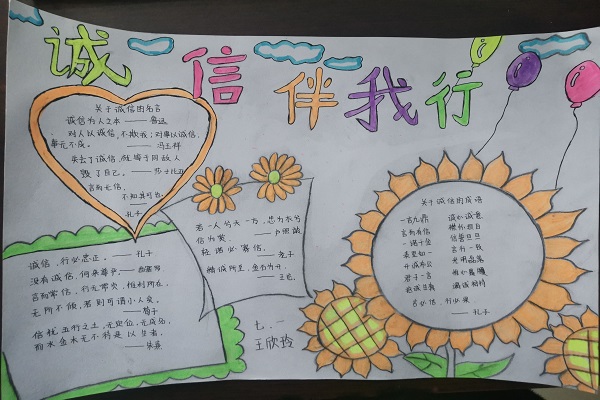 诚信伴我行
关于诚信的名言
诚信为人之本 —— 鲁迅
对人以诚信,不欺我;对事以诚信,
事无不成。 —— 冯玉祥
失去了诚信,就等于同敌人
毁了自己。 —— 莎士比亚
言而无信,
不知其可也。
—— 孔子
若一人兮天一方,忠为衣兮
信为裳 —— 卢照龄
轻诺必寡信。
—— 老子
精诚所至,金石为开。
—— 王充
关于诚信的成语
一言九鼎 诚心诚意
言而有信
一诺千金 信誓旦旦
表里如一 言行一致
开诚布公 光明磊落
君子一言
言必信,行必果
—— 孔子
诚信,行必忠正。 —— 孔子
没有诚信,何来尊严 —— 西塞罗
言而常信,行无常贞,惟利所在,
无所不倾,若则可谓小人矣。
—— 荀子
信犹五行之土,无定位,无成名,
而水金木无不待是以生者。
—— 朱熹
七.一
王欣玲